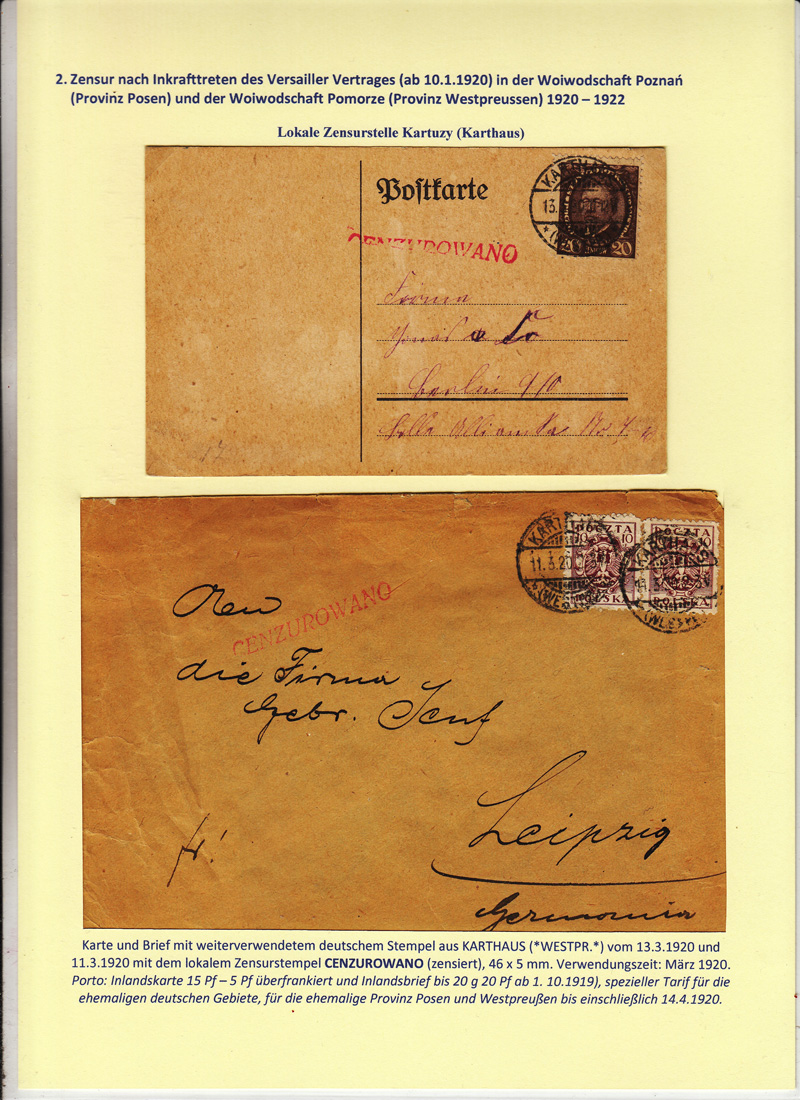 2. Zensur nach Inkrafttreten des Versailler Vertrages (ab 10.1.1920) in der Woiwodschaft Poznań
(Provinz Posen) und der Woiwodschaft Pomorze (Provinz Westpreussen) 1920 – 1922
Lokale Zensurstelle Kartuzy (Karthaus)
Postkarte
KARTHAUS
13.
20 20
CENZUROWANO
Firma
Berlin
KARTHAUS
11.3.20
(WESTPR.)
POCZTA
10 10
POLSKA
POCZTA
10
POLSKA
KARTHAUS
(WESTPR.)
CENZUROWANO
die Firma
Gebr. Senf
Leipzig
fr!
Germania
Karte und Brief mit weiterverwendetem deutschem Stempel aus KARTHAUS (*WESTPR.*) vom 13.3.1920 und
11.3.1920 mit dem lokalem Zensurstempel CENZUROWANO (zensiert), 46 x 5 mm. Verwendungszeit: März 1920.
Porto: Inlandskarte 15 Pf – 5 Pf überfrankiert und Inlandsbrief bis 20 g 20 Pf ab 1. 10.1919), spezieller Tarif für die
ehemaligen deutschen Gebiete, für die ehemalige Provinz Posen und Westpreußen bis einschließlich 14.4.1920.